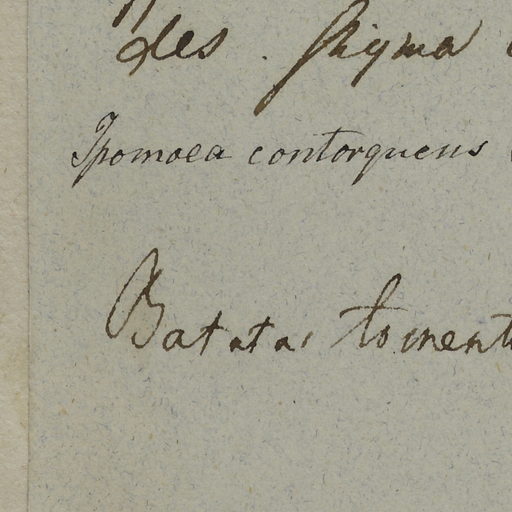 des Stigma
Ipomoea contorquens
Batatas toment